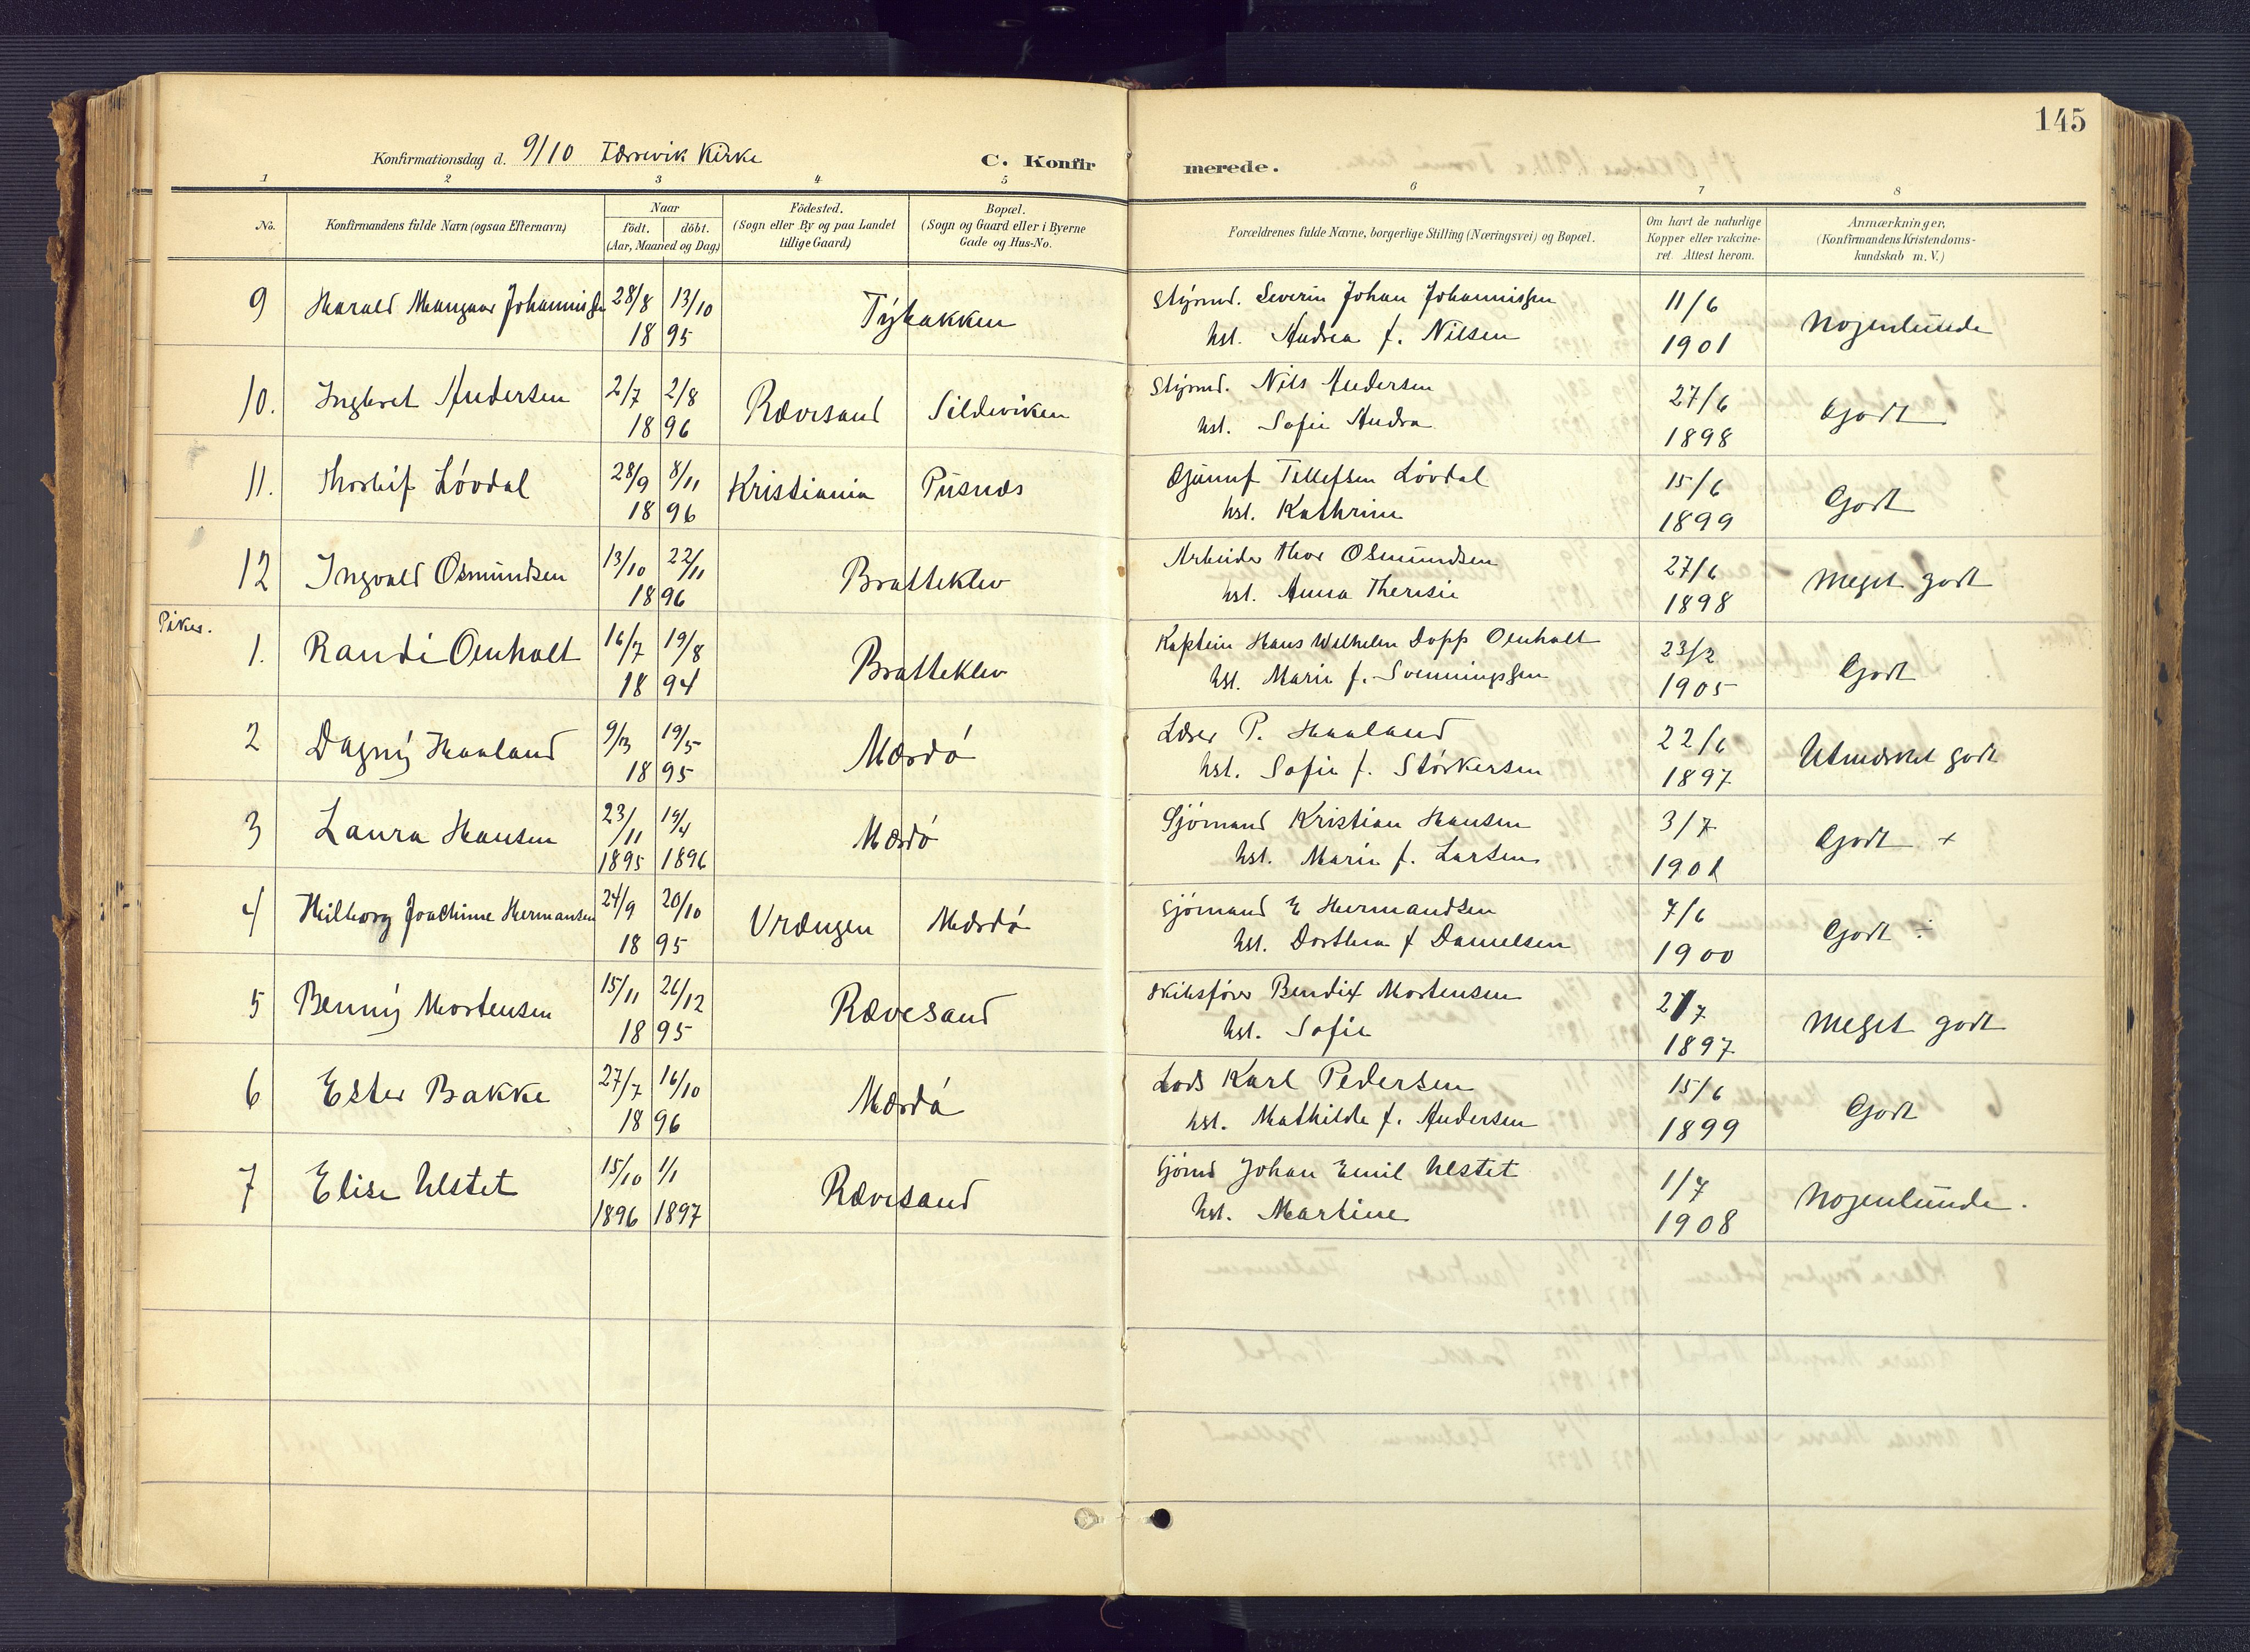 145
Konfirmationsdag d. 9/10 Færvik Kirke
C. Konfirmerede.
1 2 3 4 5 6 7 8
No.
Konfirmandens fulde Navn (ogsaa Efternavn)
Naar
födt. döbt.
(Aar, Maaned og Dag)
Födested.
(Sogn eller By og paa Landet
tillige Gaard)
Bopæl.
(Sogn og Gaard eller i Byerne
Gade og Hus-No.
Forældrenes fulde Navne, borgerlige Stilling (Næringsvei) og Bopæl.
Om havt de naturlige
Kopper eller vakcine-
ret Attest herom.
Anmærkninger,
(Konfirmandens Kristendoms-
kundskab m. V.)
9 Harald Johannissen 28/8 13/10 Tybakken Styrmd. Severin Johan Johannissen 11/6 Nogenlunde
18 95 hst. Andrea f. Nilsen 1901
10. Ingbret Andersen 2/7 2/8 Rævesand Sildeviken Styrmd. Nils Andersen 27/6 Godt
18 96 hst. Sofie Andra 1898
11. Thorleif Lövdal 28/9 8/11 Kristiania Pusnes Gjunuf Tellefsen Lövdal 15/6 Godt
18 96 hst. Kathrine 1899
12 Ingvald Osmundsen 13/10 22/11 Bratteklev Arbeider Thor Osmundsen 27/6 Meget godt
18 96 hst. Anna Theresie 1898
Piker.
1. Randi Omholt 16/7 19/8 Bratteklev Kaptein Hans Wilhelm Dopp Omholt 23/2 Godt
18 94 hst. Marie f. Svenningssen 1905
2 Dagny Haaland 9/3 19/5 Mærdö Lærer P. Haaland 22/6 Utmærket godt
18 95 hst. Sofie f. Störkersen 1897
3 Laura Hansen 23/11 19/4 Mærdö Sjömand Kristian Hansen 3/7 Godt +
1895 1896 hst. Marie f. Larsen 1901
4 Hilborg Joachime Hermansen 24/9 20/10 Vrængen Mærdö Sjömand E Hermandsen 7/6 Godt ÷
18 95 hst. Dorthea f Danielsen 1900
5 Benny Mortensen 15/11 26/12 Rævesand Skibsförer Bendix Mortensen 2/7 Meget godt
18 95 hst. Sofie 1897
6 Ester Bakke 27/7 16/10 Mærdö Lods Karl Pedersen 15/6 Godt
18 96 hst. Mathilde f. Andersen 1899
7 Elise Ulstet 15/10 1/1 Rævesand Sjömd Johan Emil Ulstet 1/7 Nogenlunde.
1896 1897 hst. Martine 1908